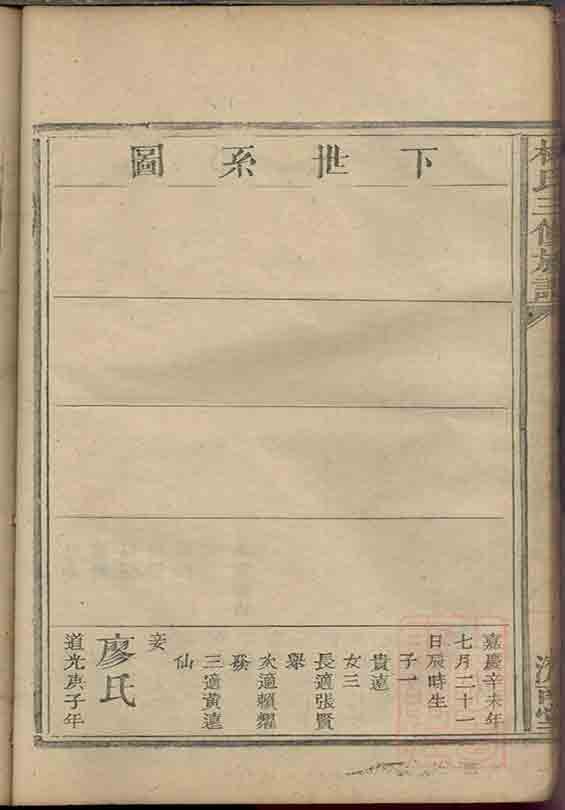 氏三修族譜
下世系圖
嘉慶辛未年
七月二十一
日辰時生
子一
貴遠
女三
長適張賢
舉
次適賴耀
三適黃遠
仙
妾
廖氏
道光庚子年